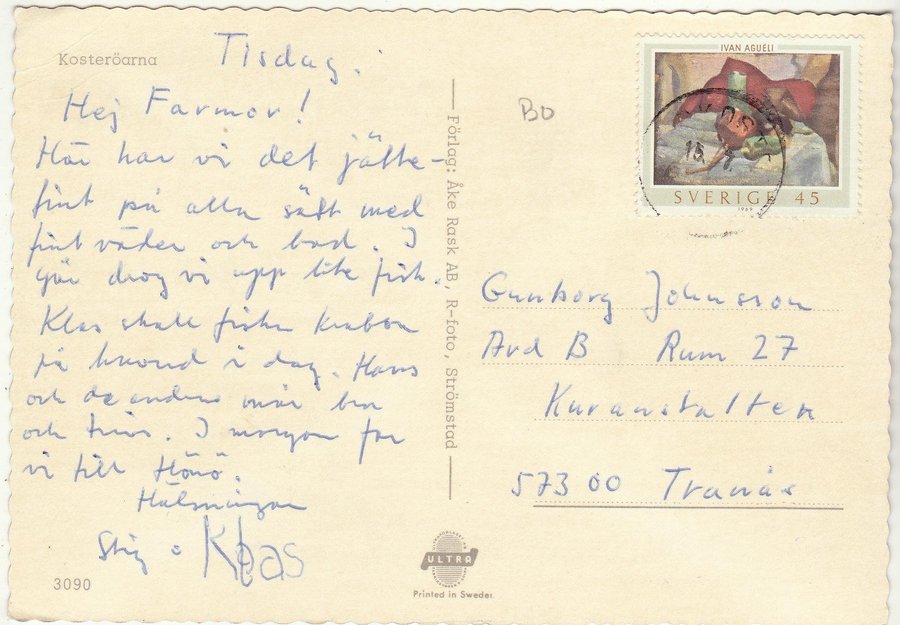 Kosteröarna
Tisdag.
Hej Farmor!
Här har vi det jätte-
fint på alla sätt med
fint väder och bad. I
går drog vi upp lite fisk.
Klas skall fiska krabbor
på i dag. Hans
och de andra mår bra
och trivs. I morgon far
vi till Hönö.
Hälsningar
Stig o Klas
3090
Förlag: Åke Rask AB, R-foto, Strömstad
ULTRA
Printed in Sweden
BO
IVAN AGUÉLI
SVERIGE 45
1969
Gunborg Johnsson
Avd B Rum 27
Kuranstalten
57300 Tranås